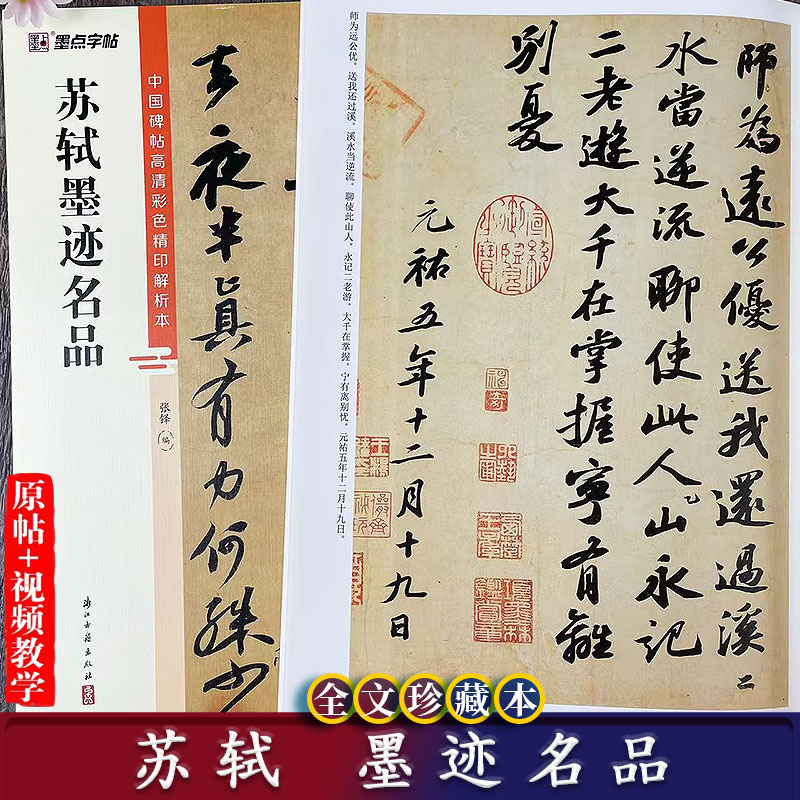 墨点字帖
中国碑帖高清彩色精印解析本
苏轼墨迹名品
张铎 编
浙江古籍出版社
去夜半真有力何殊少
师为远公优。送我还过溪。溪水当逆流。聊使此山人。永记二老游。大千在掌握。宁有离别忧。元祐五年十二月十九日。
師為遠公優送我還過溪二
水當逆流聊使此人山永記
二老遊大千在掌握寧有離
別憂
元祐五年十二月十九日
原帖+视频教学
全文珍藏本
苏轼 墨迹名品